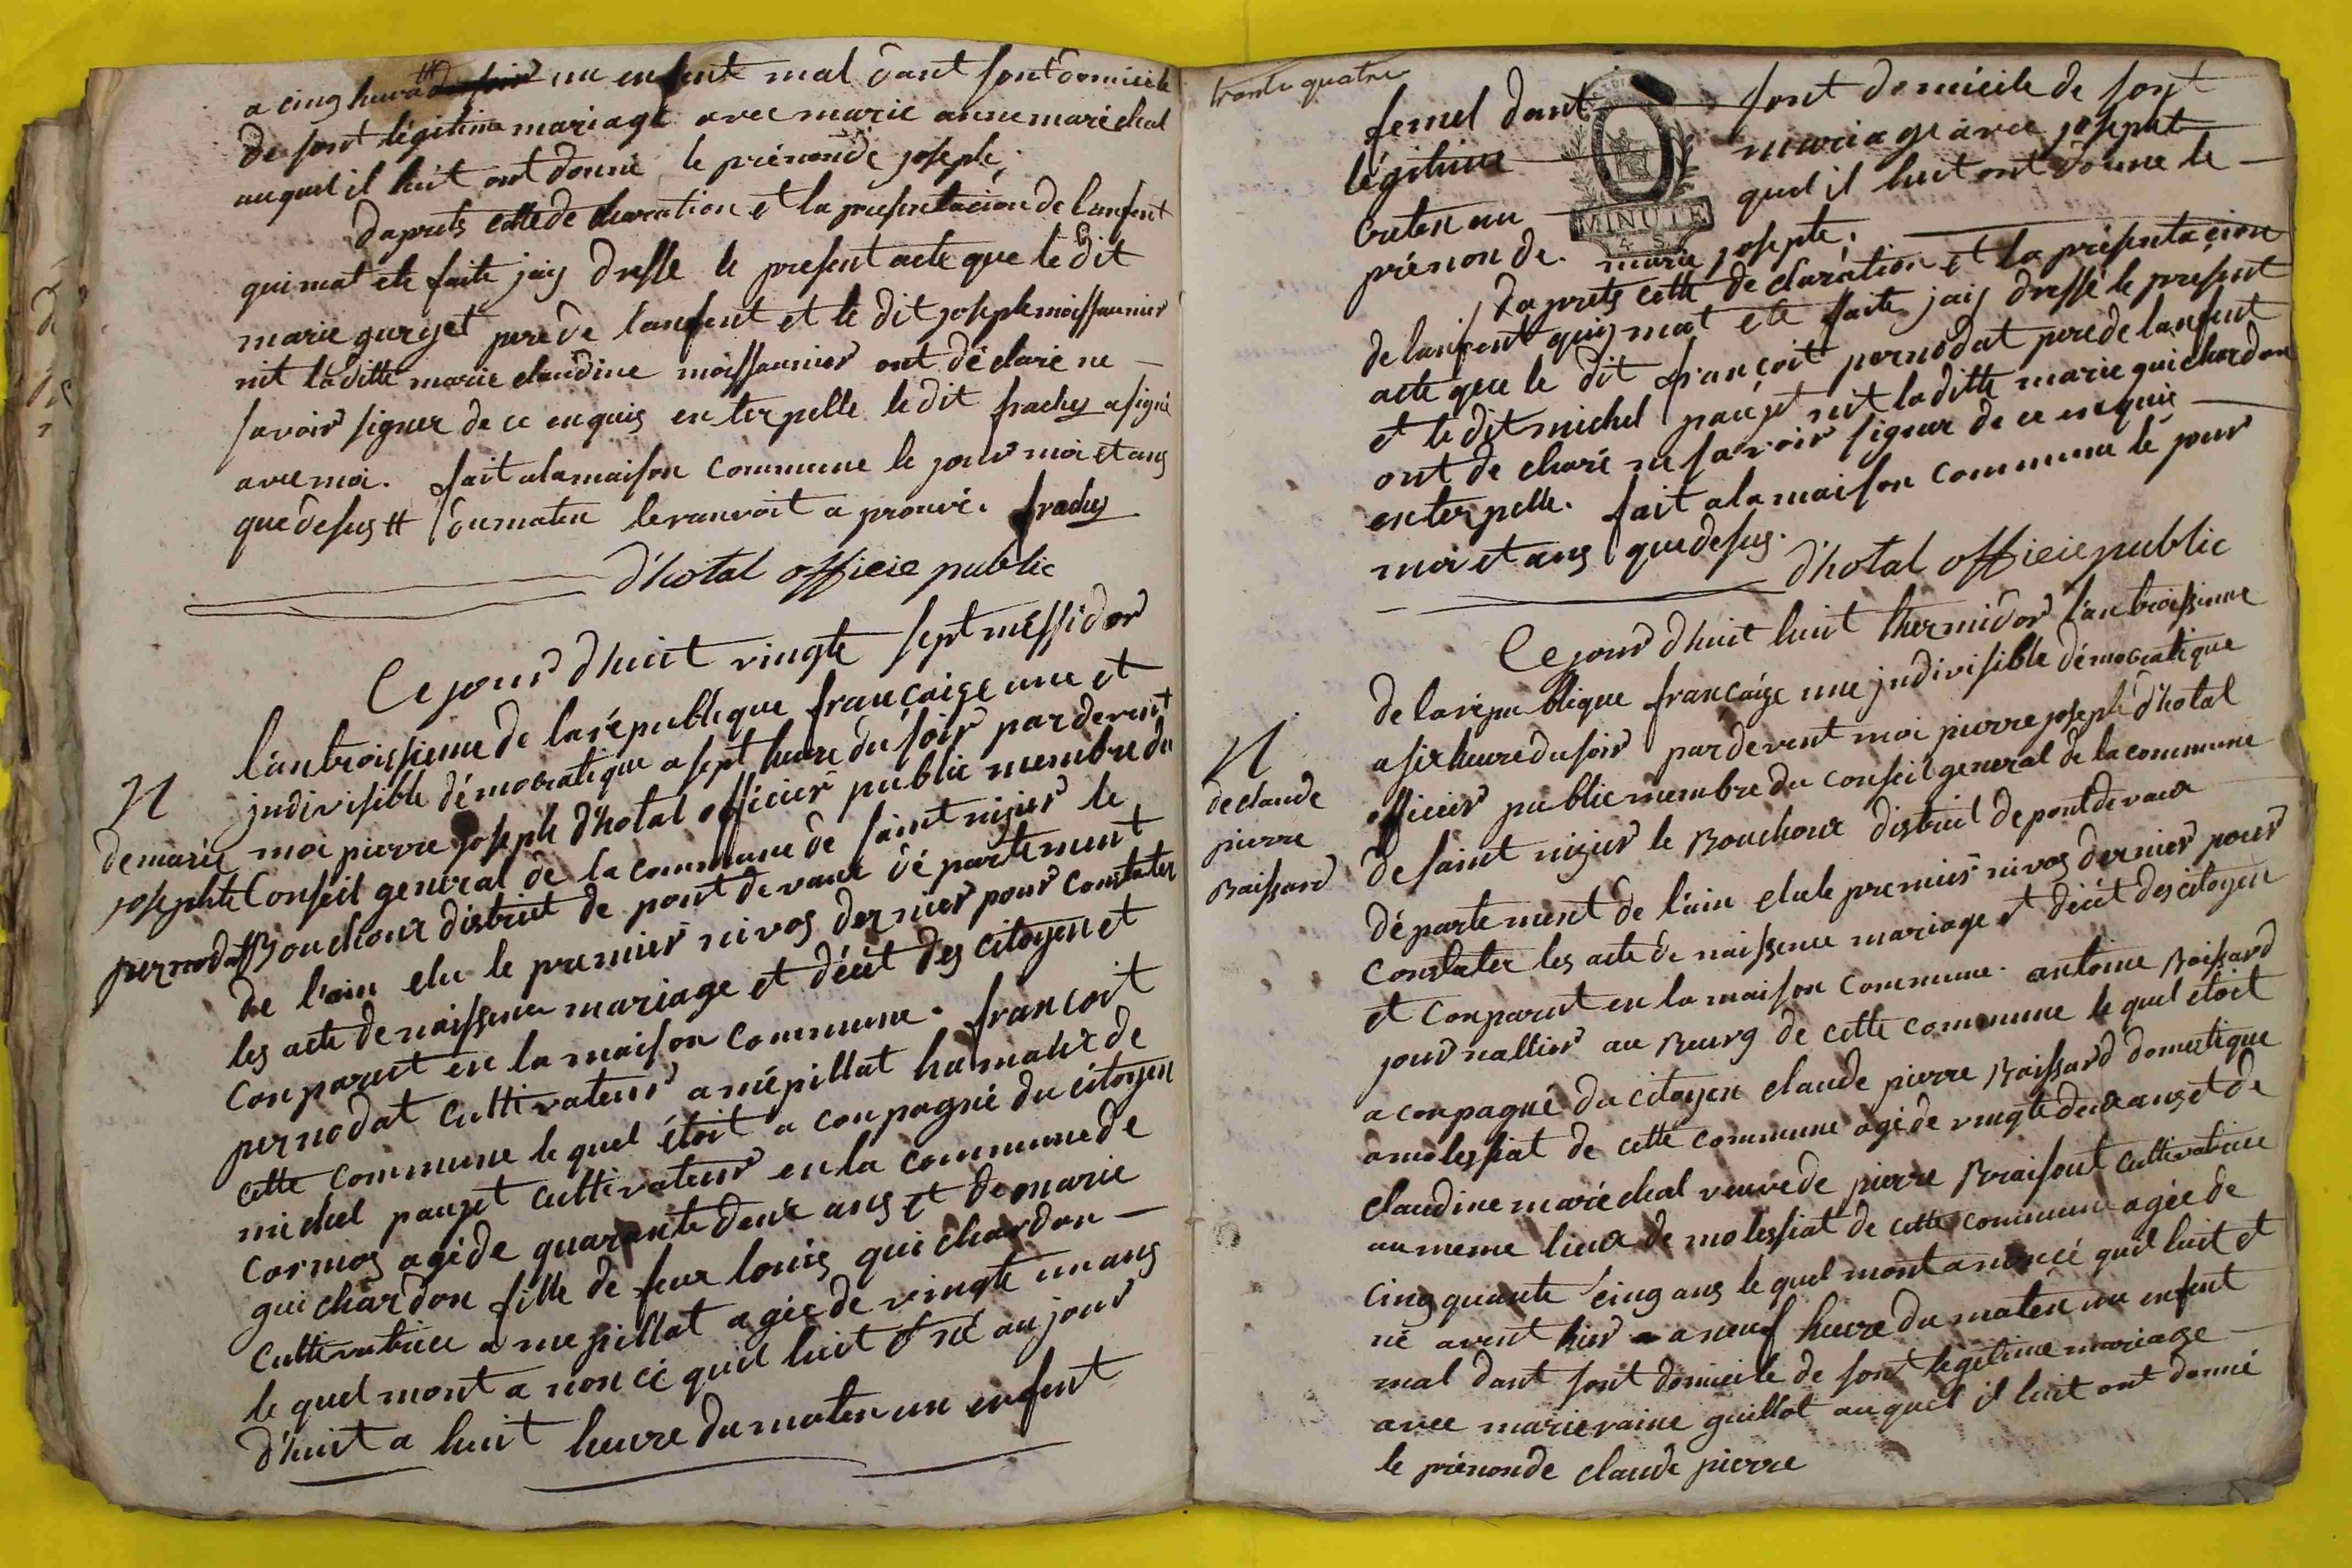 a cinq heure du soir un enfent mal dant sont domicile
de sont légitime mariage avec marie anne maréchal
auquel il luit ont donné le prénonde joseph.
daprets cette de claration et la presentacion de lenfent
qui mat ete faite jais dressé le present acte que le dit
marie gurget pere de lanfent et le dit joseph moissonnier
nit laditte marie claudine moissonnier ont déclaré ne
savoir signer de ce enquis enterpelle le dit frachey a signé
avec moi. fait a la maison commune le jour moi et ans
que desus # du maten le ranvoit a prouvé. frachey
d'hotal officie public
Ce jour d'huit vingte sept messidor
l'an troissieme de la république françaige une et
jndivisible démocratique a sept heure du soir par devent
moi pierre joseph d'hotal officier public membre du
Conseil general de la commune de saint nizier le
Bouchoux district de pont de vaux département
de l'ain elu le premier nivos dernier pour constater
les acte de naissence mariage et décet des citoyen et
conparut en la maison commune. francoit
pernodat cultivateur a mépillat hamaux de
cette commune le quel étoit a conpagné du citoyen
michel pauget cultivateur en la commune de
cormos agé de quarante deux ans et de marie
guichardon fille de feux louis guichardon
cultivatrice a mepillat agée de vingte un ans
le quel mont a noncé quil luit et né au jour
d'huit a huit heure du maten un enfent
N
de marie
josephte
pernodat
trante quatre
femel dant sont domicile de sont
légitime mariage avec josepht
Cuten au quel il luit ont donne le
prénon de marie josepte.
MINUTE
4 S
daprets cette declaration et la présentacion
de lanfent qui mat ete faite jais dressé le présent
acte que le dit françoit pernodat pere de lanfent
et le dit michel pauget nit la ditte marie guichardon
ont de claré ne savoir signer de ce enquis
enterpelle. fait a la maison commune le jour
moi et ans que desus.
d'hotal officie public
Ce jour d'huit huit thermidor l'an troissieme
de la république françaige une jndivisible démocratique
a six heure du soir par devent moi pierre joseph d'hotal
officier public membre du conseil general de la commune
de saint nizier le Bouchoux district de pont de vaux
département de l'ain elu le premier nivos dernier pour
constater les acte de naissence mariage et décet des citoyen
et conparut en la maison commune. antoine Boissard
journallier au Bourg de cette commune le quel étoit
a conpagné du citoyen claude pierre Boissard domestique
a molessiat de cette commune agé de vingte deux ans et de
claudine maréchal veuve de pierre Braisout cultivatrice
au meme lieux de molessiat de cette commune agée de
cinquante cinq ans le quel mont a noncé quil luit et
né avent hier a neuf heure du maten un enfent
mal dant sont domicile de sont legitime mariage
avec marie raine guillot auquel il luit ont donné
le prénonde claude pierre
N
de claude
pierre
Boissard